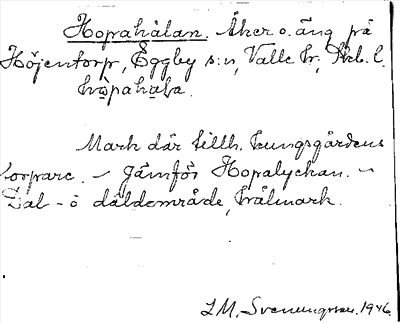 Hopahålan. Åker o. äng på
Höjentorp, Eggby s:n, Valle hr, Skb. l.
Mark där tillh. kungsgårdens
torpare. – Jämför Hopalychan. –
Dal- o däldområde,
L M, Svenungsson. 1946.